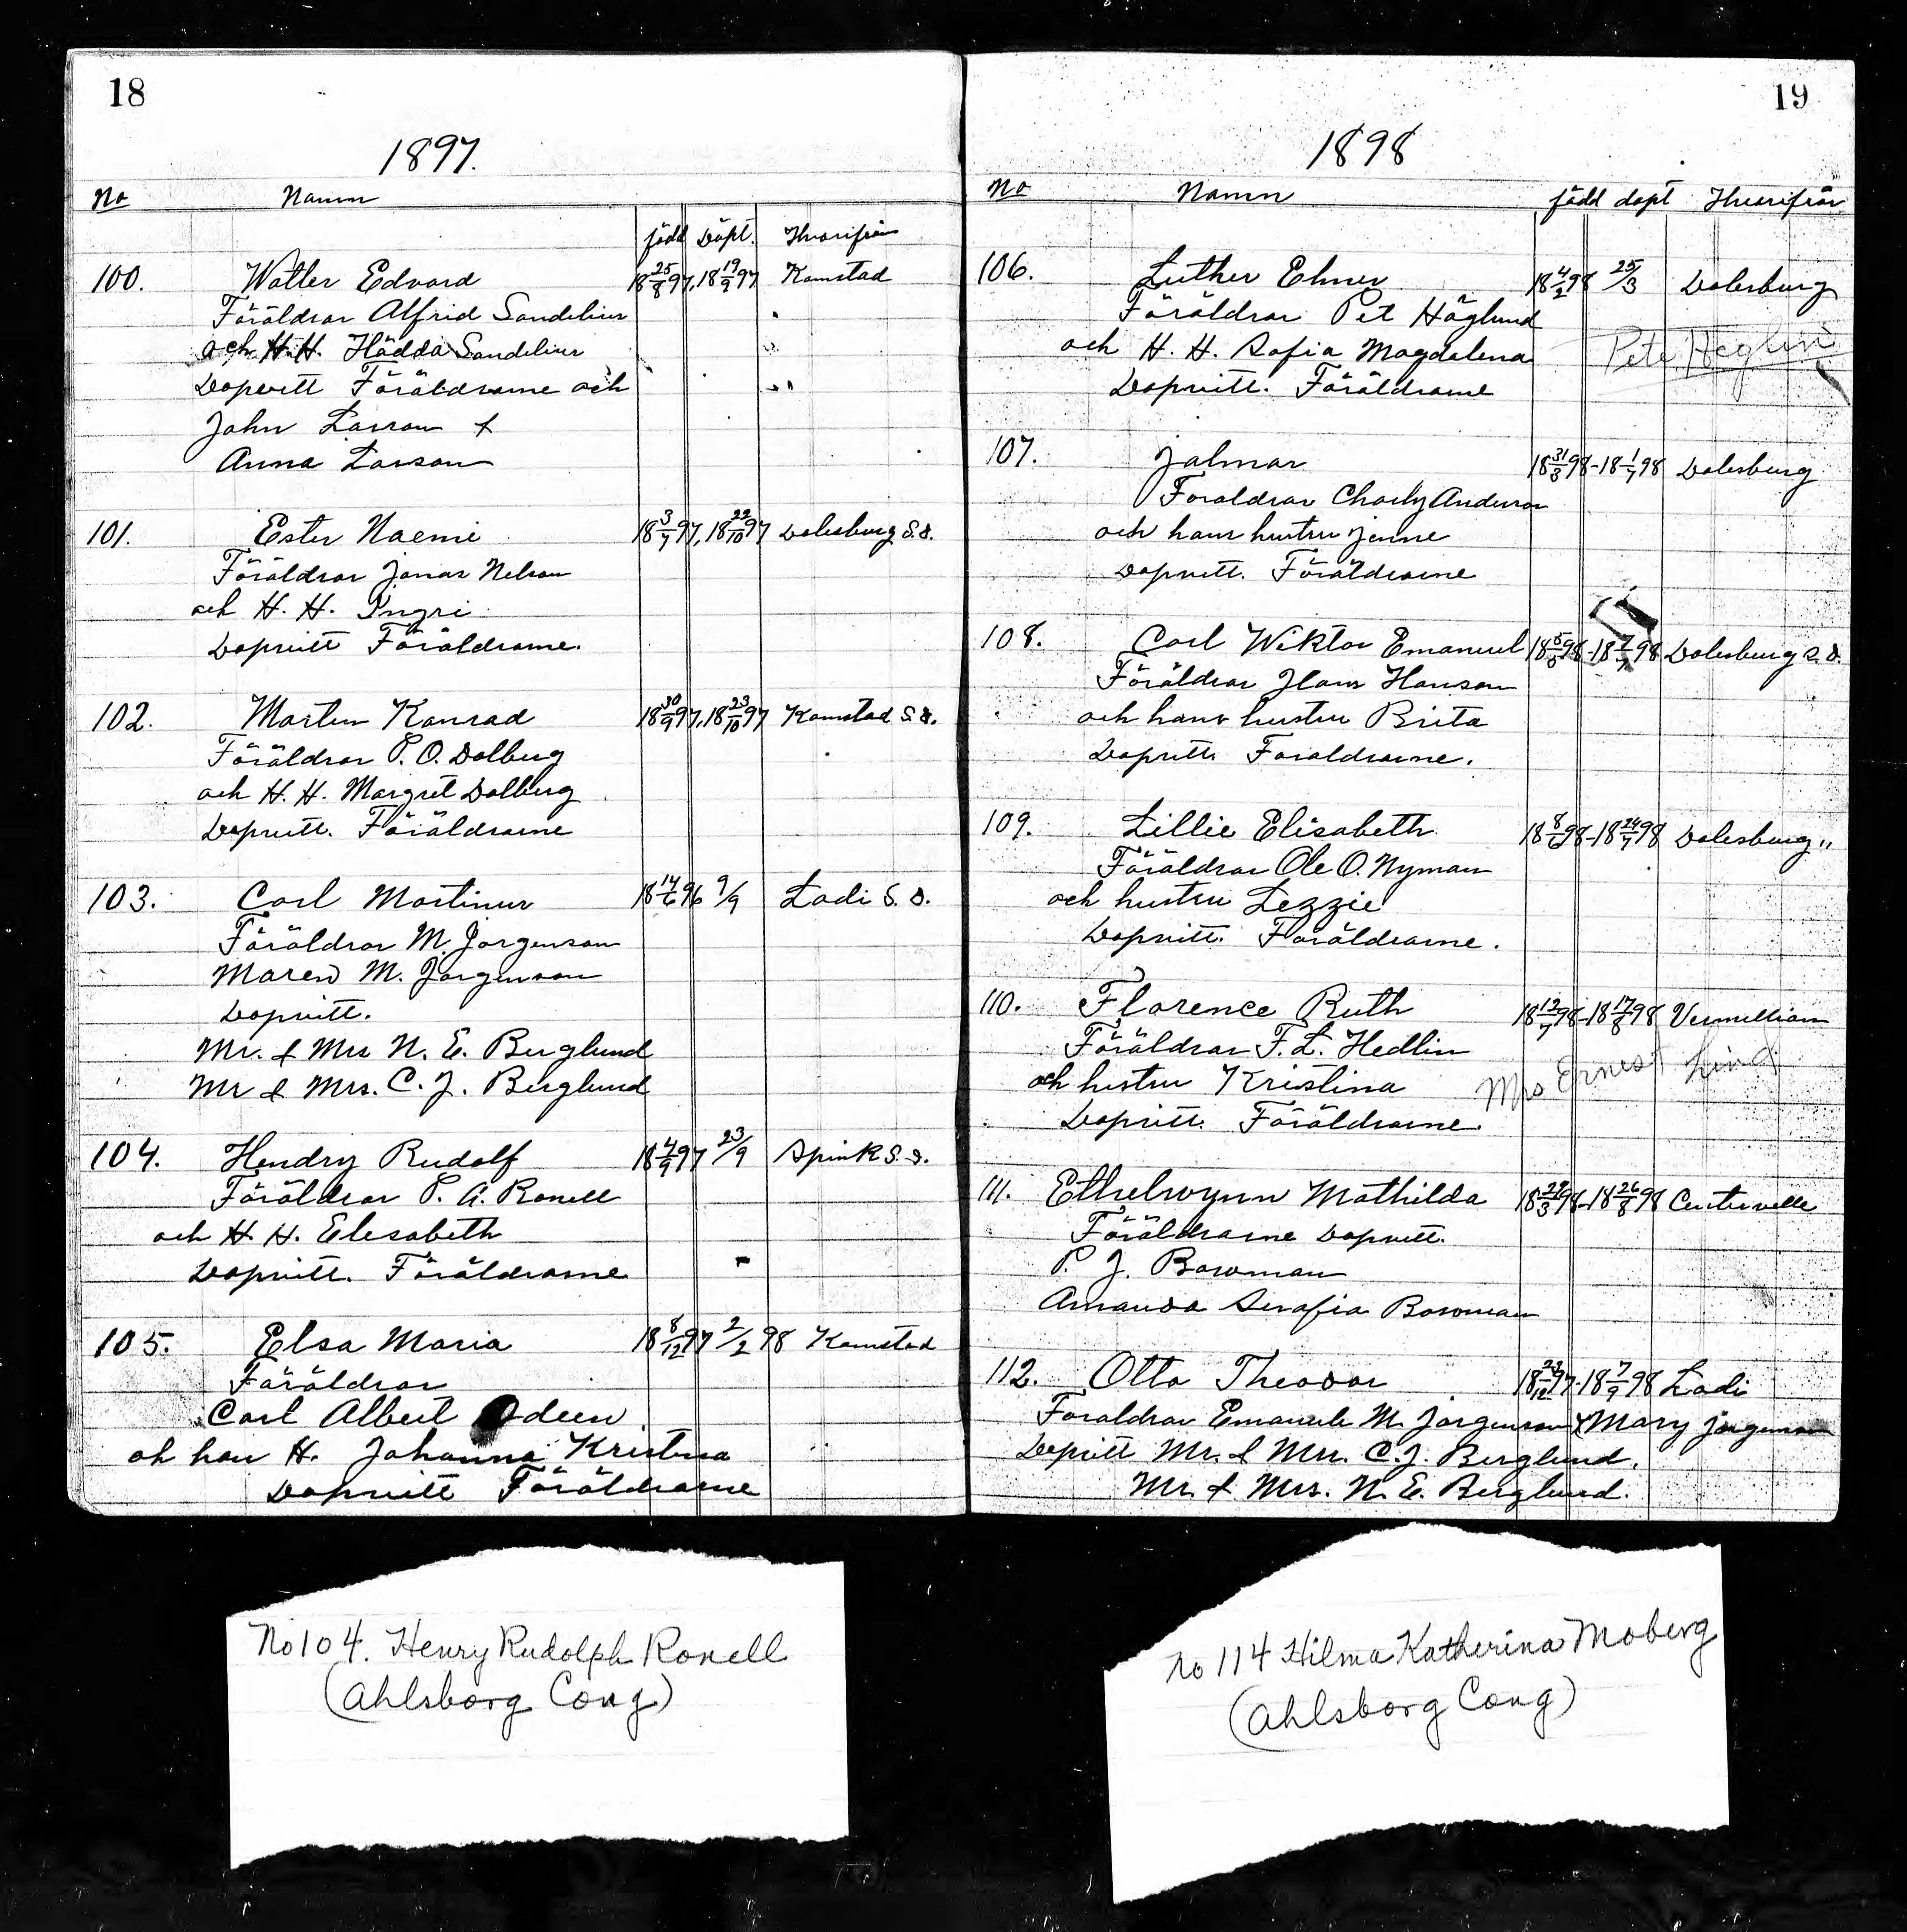 18
1897.
No Namn
född Döpt. Hvarifrån
100. Walter Edvard 18 25/8 97, 18 19/9 97 Komstad
Föräldrar Alfrid Sandelius
och H. H. Hädda Sandelius
Dopvitt Föräldrarne och
John Larson &
Anna Larson
101. Ester Naemi 18 3/7 97, 18 22/10 97 Dalesburg S. D.
Föräldrar Jonas Nelson
och H. H. Ingri
Dopvitt Föräldrarne.
102. Martin Konrad 18 30/9 97, 18 23/10 97 Komstad S. D.
Föräldrar P. O. Dalberg
och H. H. Margret Dalberg
Dopvitt. Föräldrarne
103. Carl Martinus 18 14/6 96 9/9 Lodi S. D.
Föräldrar M. Jorgenson
Maren M. Jorgenson
Dopvitt.
Mr. & Mrs N. E. Berglund
Mr & Mrs. C. J. Berglund
104. Hendry Rudolf 18 4/9 97 23/9 Spink S. D.
Föräldrar P. A. Ronell
och H. H. Elesabeth
Dopvitt. Föräldrarne
105. Elsa Maria 18 8/12 97 2/2 98 Komstad
Föräldrar
Carl Albert Odeen
ok han H. Johanna Kristina
Dopvitt Föräldrarne
19
1898
No Namn född dopt Hvarifrån
106. Luther Elmer 18 4/2 98 25/3 Dalesburg
Föräldrar Pet Häglund
och H. H. Sofia Magdalena Pete Heglin
Dopvitt. Föräldrarne
107. Jalmar 18 31/3 98 - 18 1/7 98 Dalesburg
Foraldrar Charly Anderson
och hans hustru Jenne
Dopvitt. Föräldrarne
108. Carl Wiktor Emanuel 18 5/5 98 - 18 7/7 98 Dalesburg S. D.
Föräldrar Hans Hanson
och hans hustru Brita
Dopvitt. Foraldrarne.
109. Lillie Elisabeth 18 8/6 98 - 18 24/7 98 Dalesburg "
Föräldrar Ole O. Nyman
och hustru Lezzie
Dopvitt. Föräldrarne.
110. Florence Ruth 18 12/7 98 - 18 17/8 98 Vermillion
Föräldrar F. L. Hedlin
och hustru Kristina Mrs Ernest Lind
Dopvitt. Föräldrarne.
111. Ethelwynn Mathilda 18 29/3 98 - 18 26/8 98 Centerville
Föräldrarne Dopvitt.
P. J. Bowman
Amanda Serafia Bowman
112. Otto Theodor 18 23/12 97 - 18 7/9 98 Lodi
Foraldrar Emanuele M. Jorgenson & Mary Jorgenson
Dopvitt Mr. & Mrs. C. J. Berglund,
Mr. & Mrs. N. E. Berglund.
No 104. Henry Rudolph Ronell
(Ahlsborg Cong)
No 114 Hilma Katherina Moberg
(Ahlsborg Cong)